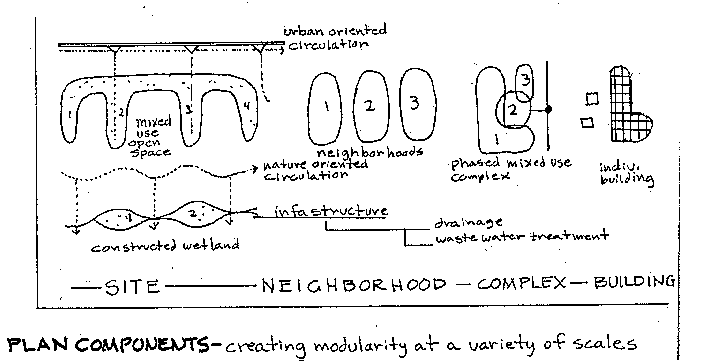 urban oriented
circulation
1
2
3
4
mixed
use
open
space
1
2
3
neighborhoods
3
2
1
phased mixed use
complex
indiv.
building
nature oriented
circulation
1
2
infastructure
drainage
waste water treatment
constructed wetland
SITE — NEIGHBORHOOD — COMPLEX — BUILDING
PLAN COMPONENTS - creating modularity at a variety of scales